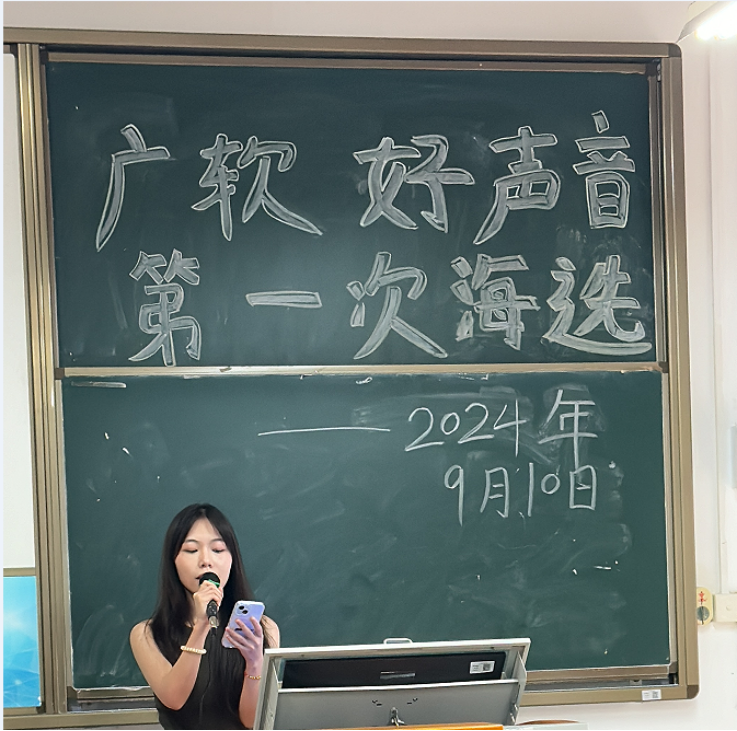 广软 好声音
第一次海选
——2024年
9月10日